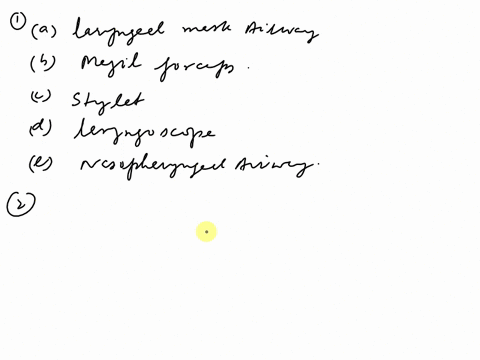 ① (a) laryngeel mask Airway
(b) Megil forceps.
(c) Stylet
(d) leryngoscope
(e) Nasopheryngeel Airway.
②